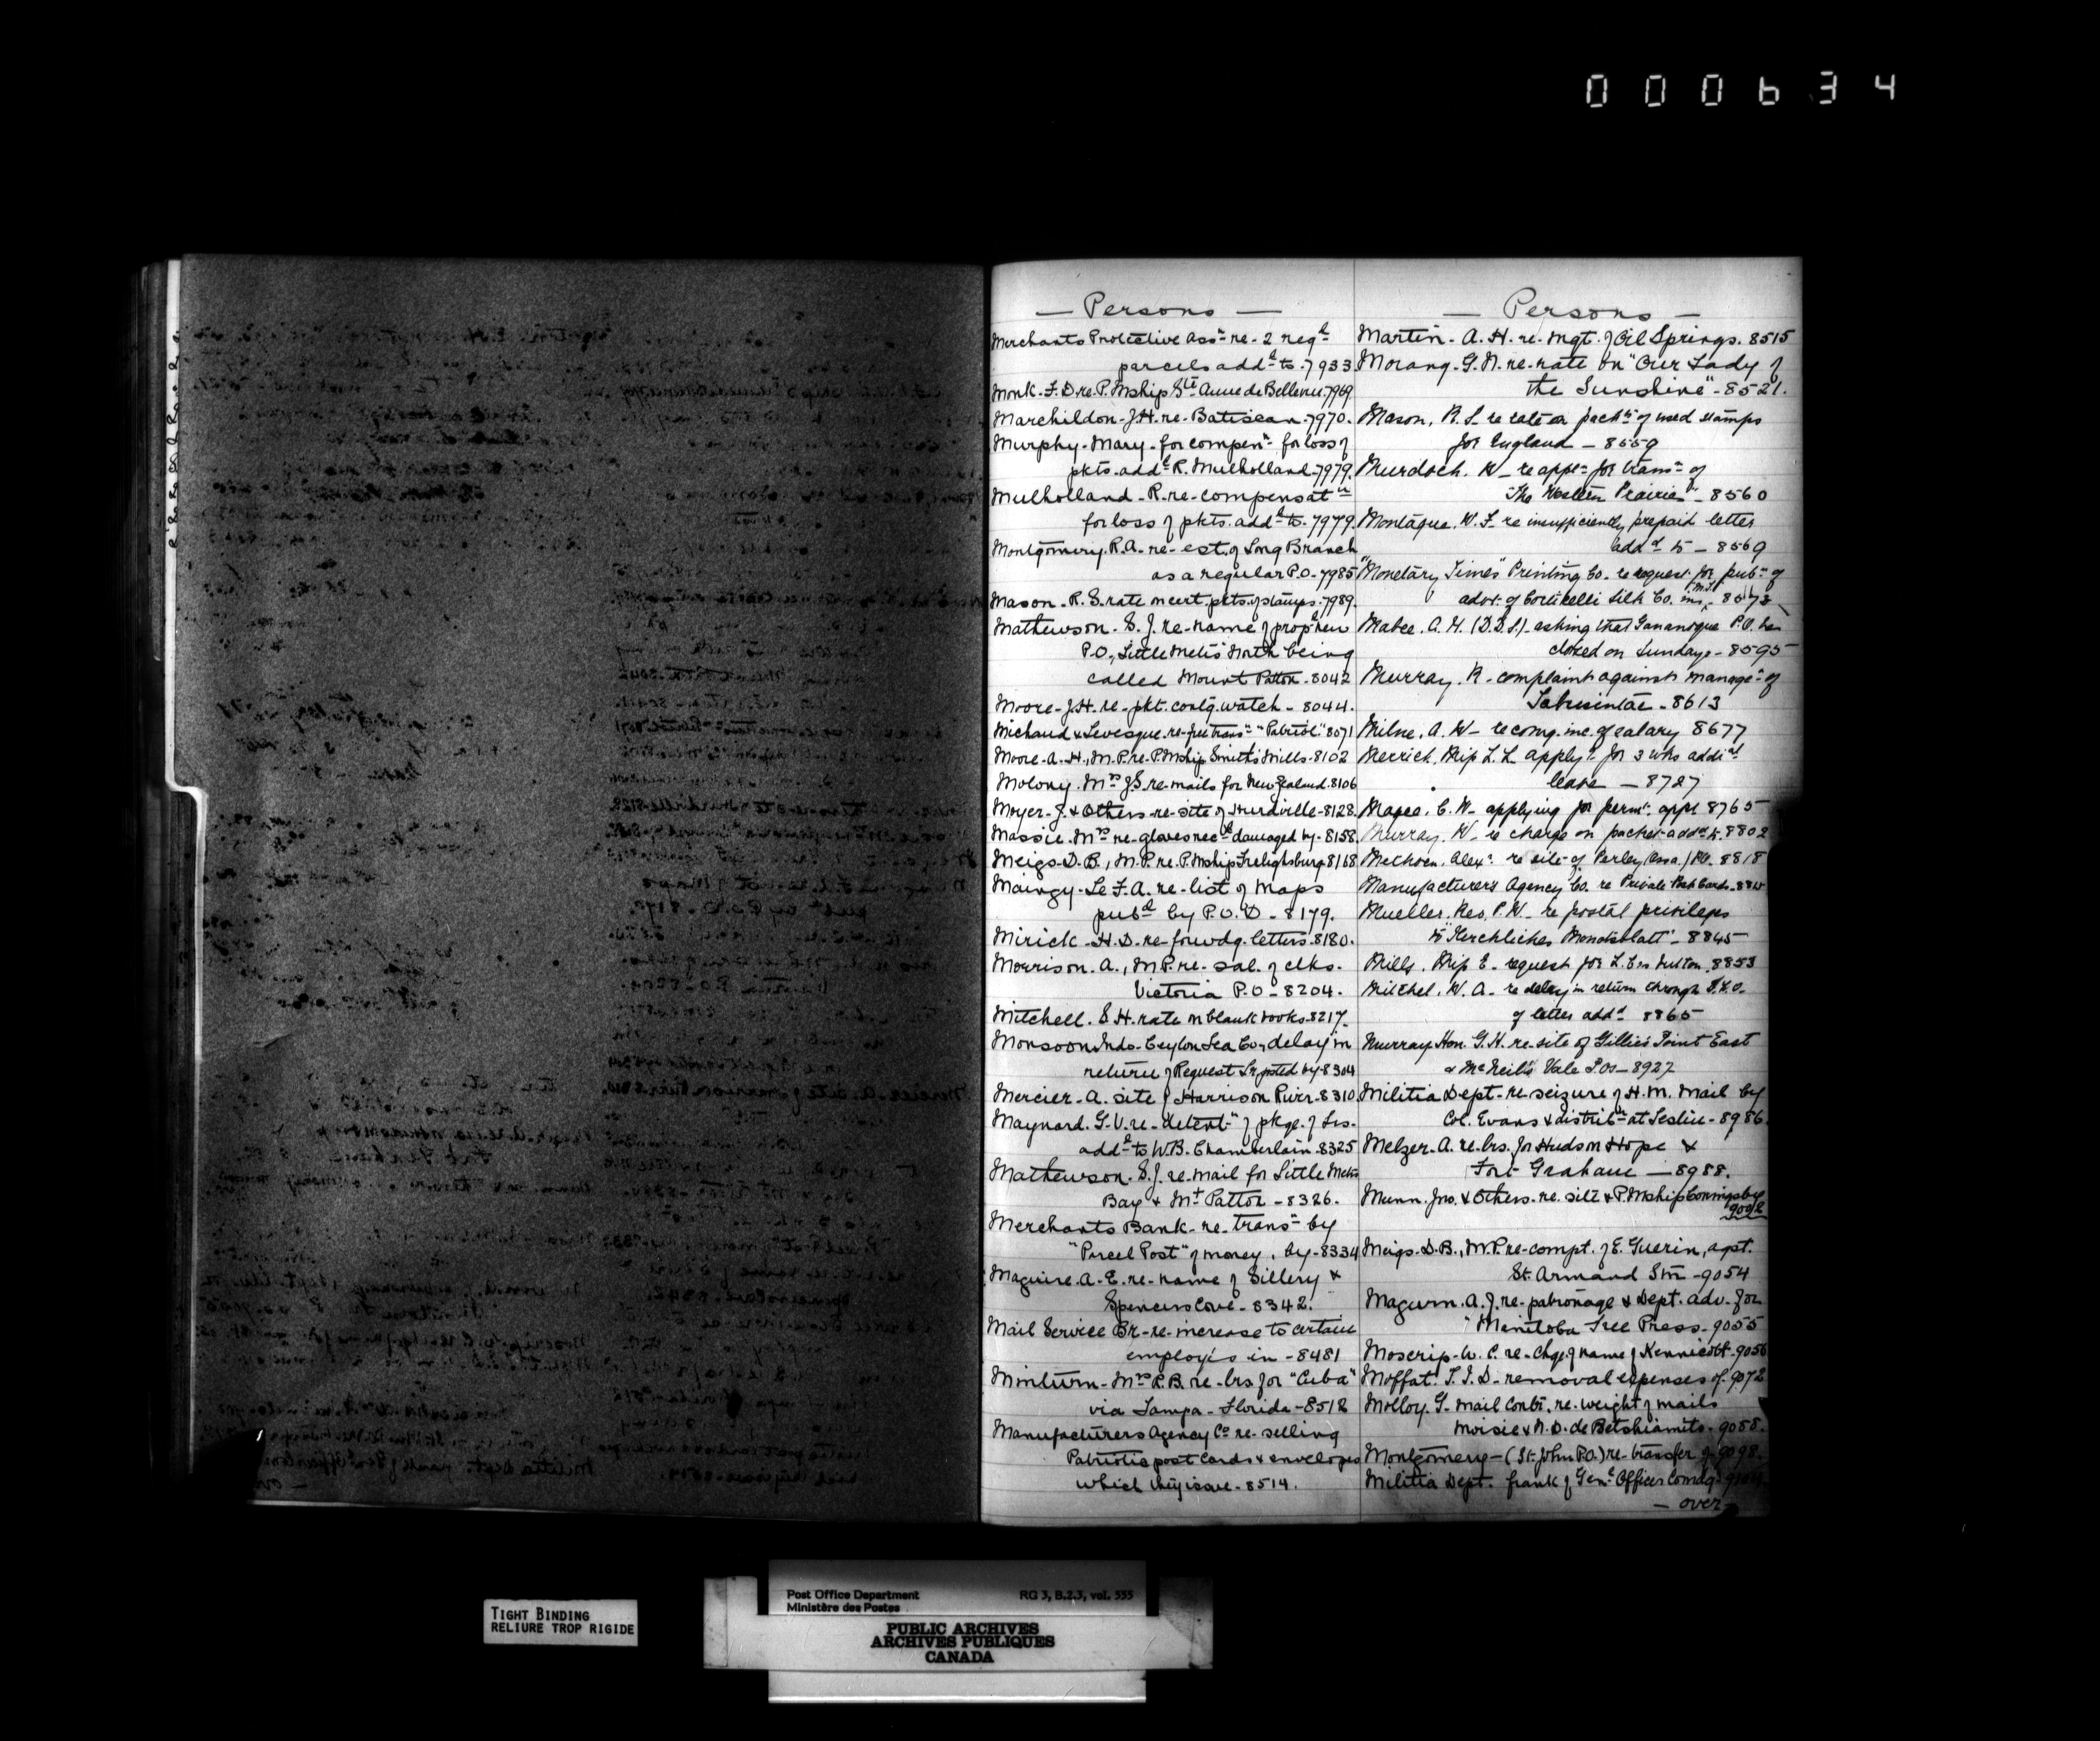 000634
— Persons —
Merchants Protective Assn re- 2 regd
parcels addd to- 7933
Monk- F. D. re. P. Mship Ste Anne de Bellevue. 7969
Marchildon- J.H. re- Batiscan- 7970.
Murphy- Mary- for compenn for loss of
pkts. addd R. Mulholland- 7979.
Mulholland- R. re- compensatn
for loss of pkts. addd to- 7979.
Montgomery. R.A. re- est. of Long Branch
as a regular P.O.- 7985
Mason- R. S. rate on cert. pkts. of stamps. 7989.
Mathewson. S. J. re- name of prop. new
P.O., Little Metis North being
called Mount Patton- 8042
Moore- J.H. re- pkt. contg. watch- 8044.
Michaud & Levesque. re- free transn "Patriote" 8071
Moore- A. H., M.P. re- P. Mship Smith's Mills- 8102
Molony. Mrs J.S. re- mails for New Zealand. 8106
Moyer- J. & Others- re- site of Hurdville- 8128.
Massie. Mrs re. gloves recd damaged by- 8158.
Meigs- D.B., M.P. re. P. Mship Frelighsburg 8168
Maingy- Le F.A. re- list of maps
pubd by P.O.D- 8179.
Mirick- H.D. re- forwdg. letters. 8180.
Morrison. A., M.P. re- sal. of clks.
Victoria P.O- 8204.
Mitchell. S. H. rate on blank books 8217.
Monsoon Indo- Ceylon Tea Co., delay in
return of Request Lr posted by- 8304
Mercier- A. site of Harrison River- 8310
Maynard. G. V. re- detentn of pkge. of Lrs.
addd to W.B. Chamberlain- 8325
Mathewson. S. J. re- mail for Little Metis
Bay & Mt Patton- 8326.
Merchants Bank- re. transn by
"Parcel Post" of money, by- 8334
Maguire. A. E. re- name of Sillery &
Spencers Cove- 8342.
Mail Service Br- re- increase to certain
employés in- 8481
Minturn- Mrs R. B. re- lrs for "Cuba"
via Tampa- Florida- 8512
Manufacturers Agency Co re- selling
Patriotic post Cards & envelopes
which they issue- 8514.
— Persons —
Martin- A. H. re- mgt. of Oil Springs. 8515
Morang- G. N. re- rate on "Our Lady of
the Sunshine"- 8521.
Mason, R. S. re rate on packts of used stamps
for England — 8559
Murdoch. W- re appn for transn of
"The Western Prairie" - 8560
Montague, W. F. re insufficiently prepaid letter
addd to — 8569
"Monetary Times" Printing Co- re request for pubn of
advt. of Corticelli Silk Co. 8573
Mabee. A. H. (D.D.S.)- asking that Gananoque P.O. be
closed on Sundays- 8595
Murray. R- complaint against managet of
8613
Milne, A. W- recomg. inc. of salary 8677
Merrick, Miss L. L. applyg for 3 wks addnl
leave — 8727
Magee, C. W- applying for perm: appt 8765
Murray, W- re charge on packet addd to 8802
Methven. Alexr re site of Perley (Assa.) P.O. 8818
Manufacturers Agency Co. re Private Post Cards
Mueller. Rev. P. W- re postal privileges
to "Kerchliches Monatsblatt" - 8845
Mills. Miss E- request for 8853
Mitchel. W. A- re delay in return through D.L.O.
of letter addd 8865
Murray. Hon. G. H. re- site of Gillies Point East
& McNeil's Vale P.Os- 8927
Militia Dept- re- seizure of H.M. Mail by
Col. Evans & distribn at Teslin- 8986.
Melzer- A. re- lrs. for Hudson Hope &
Fort Grahame — 8988.
Munn. Jno. & Others- re. site & P. Mship Conningsby
9002
Meigs- D.B., M.P. re- compt. of E. Guerin, agst.
St. Armand Stn- 9054
Magurn. A. J. re- patronage & Dept. adv. for
"Manitoba Free Press- 9055
Moscrip- W. C. re- chge. of name of Kennicott- 9056
Moffat. T. I. D- removal expenses of- 9072
Molloy. G- mail Contr. re- weight of mails
Moisie & N. D. de Betshiamits- 9058.
Montgomery- (St. John P.O.) re- transfer of- 9098.
Militia Dept. frank of Genl Officer Comdg- 9104
— over —
TIGHT BINDING
RELIURE TROP RIGIDE
Post Office Department RG 3, B.2.3, vol. 555
Ministère des Postes
PUBLIC ARCHIVES
ARCHIVES PUBLIQUES
CANADA